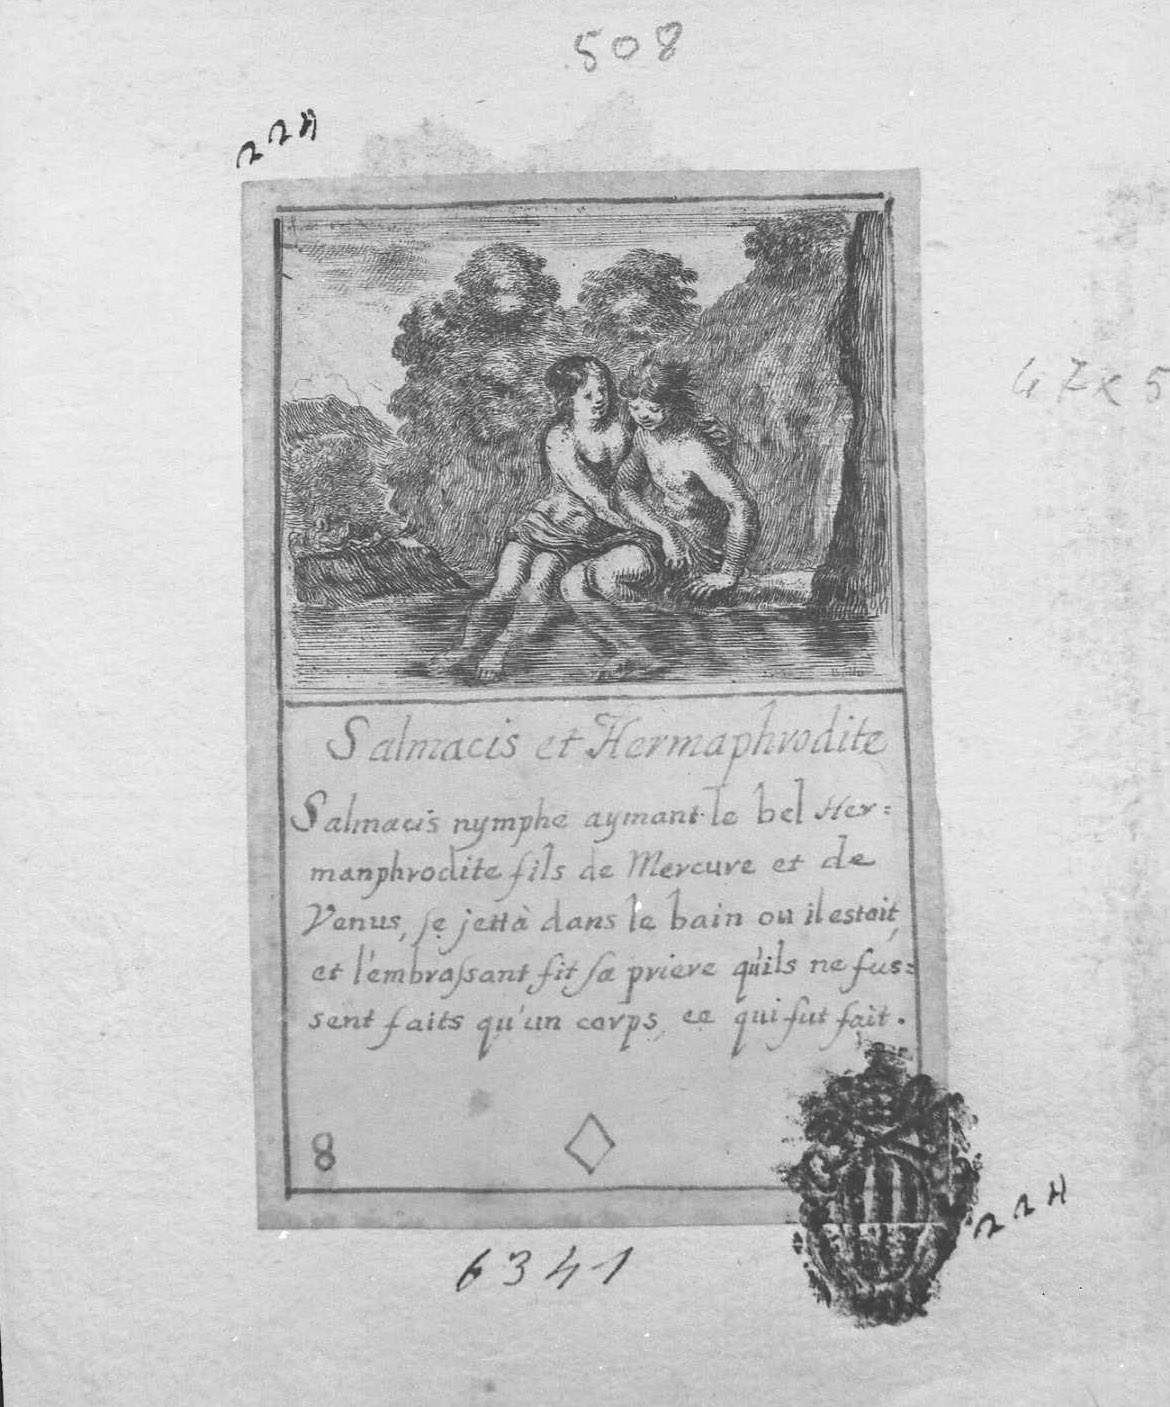 508
47x5
Salmacis et Hermaphrodite
Salmacis nymphe aymant le bel Her=
manphrodite fils de Mercure et de
Venus, se jettà dans le bain ou il estoit,
et l'embrassant, fit sa priere qu'ils ne fus=
sent faits qu'un corps, ce qui fut fait.
8
6341